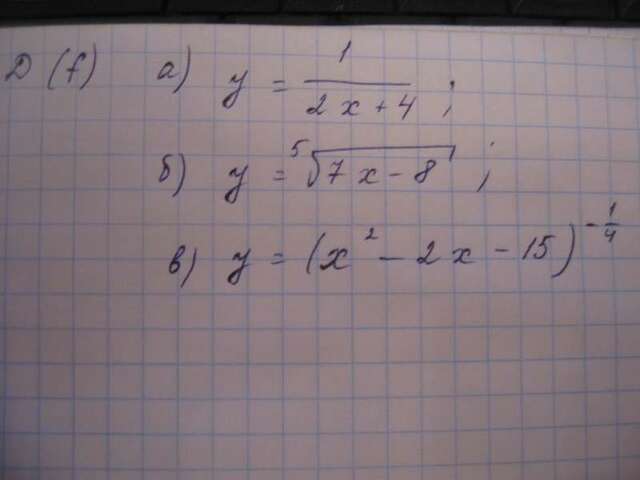 D (f) а) y = 1/(2x+4) ;
б) y = ⁵√(7x-8) ;
в) y = (x² - 2x - 15)^(-1/4)